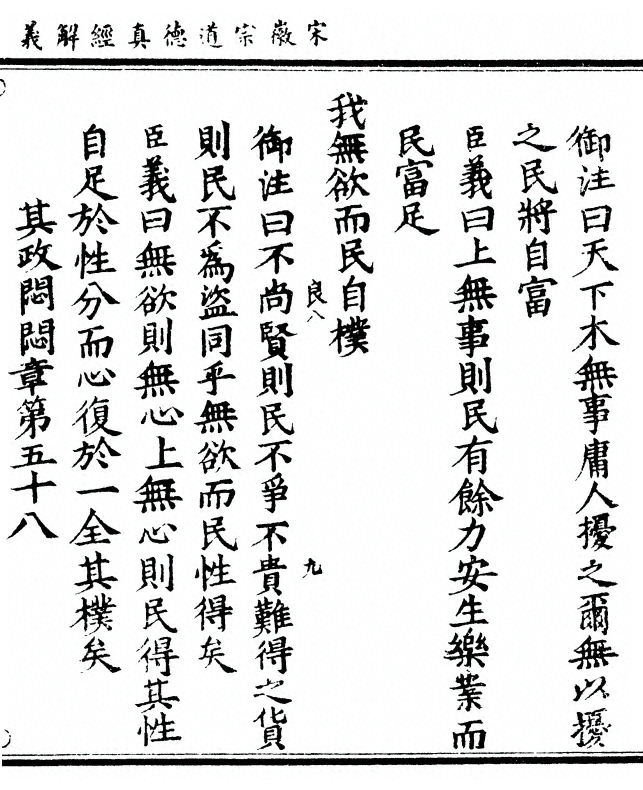 宋徽宗道德真經解義
御注曰天下木無事庸人擾之爾無以擾
之民將自富
臣義曰上無事則民有餘力安生樂業而
民富足
我無欲而民自樸
良八
九
御注曰不尚賢則民不爭不貴難得之貨
則民不為盜同乎無欲而民性得矣
臣義曰無欲則無心上無心則民得其性
自足於性分而心復於一全其樸矣
其政悶悶章第五十八